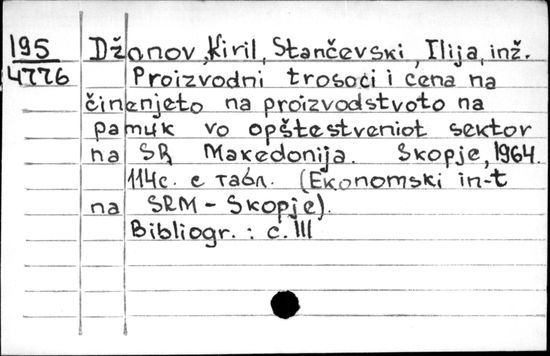 195 Džonov, Kiril, Stančevski, Ilija, inž.
4776 Proizvodni trosoci i cena na
činenjeto na proizvodstvoto na
pamuk vo opštestveniot sektor
na SR Makedonija. Skopje, 1964.
114c. c табл. (Ekonomski in-t
na SRM - Skopje).
Bibliogr.: c. III